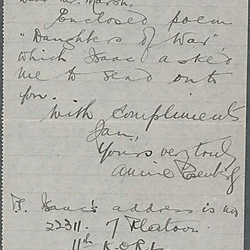 Dear Mr. Marsh,
Enclosed poem
"Daughters of War"
which Isaac asked
me to send on to
you.
With compliments
I am,
Yours very truly
Annie Rosenberg
P.S. Isaac's address is now
22311. 7 Platoon
11th K.O.R.L.